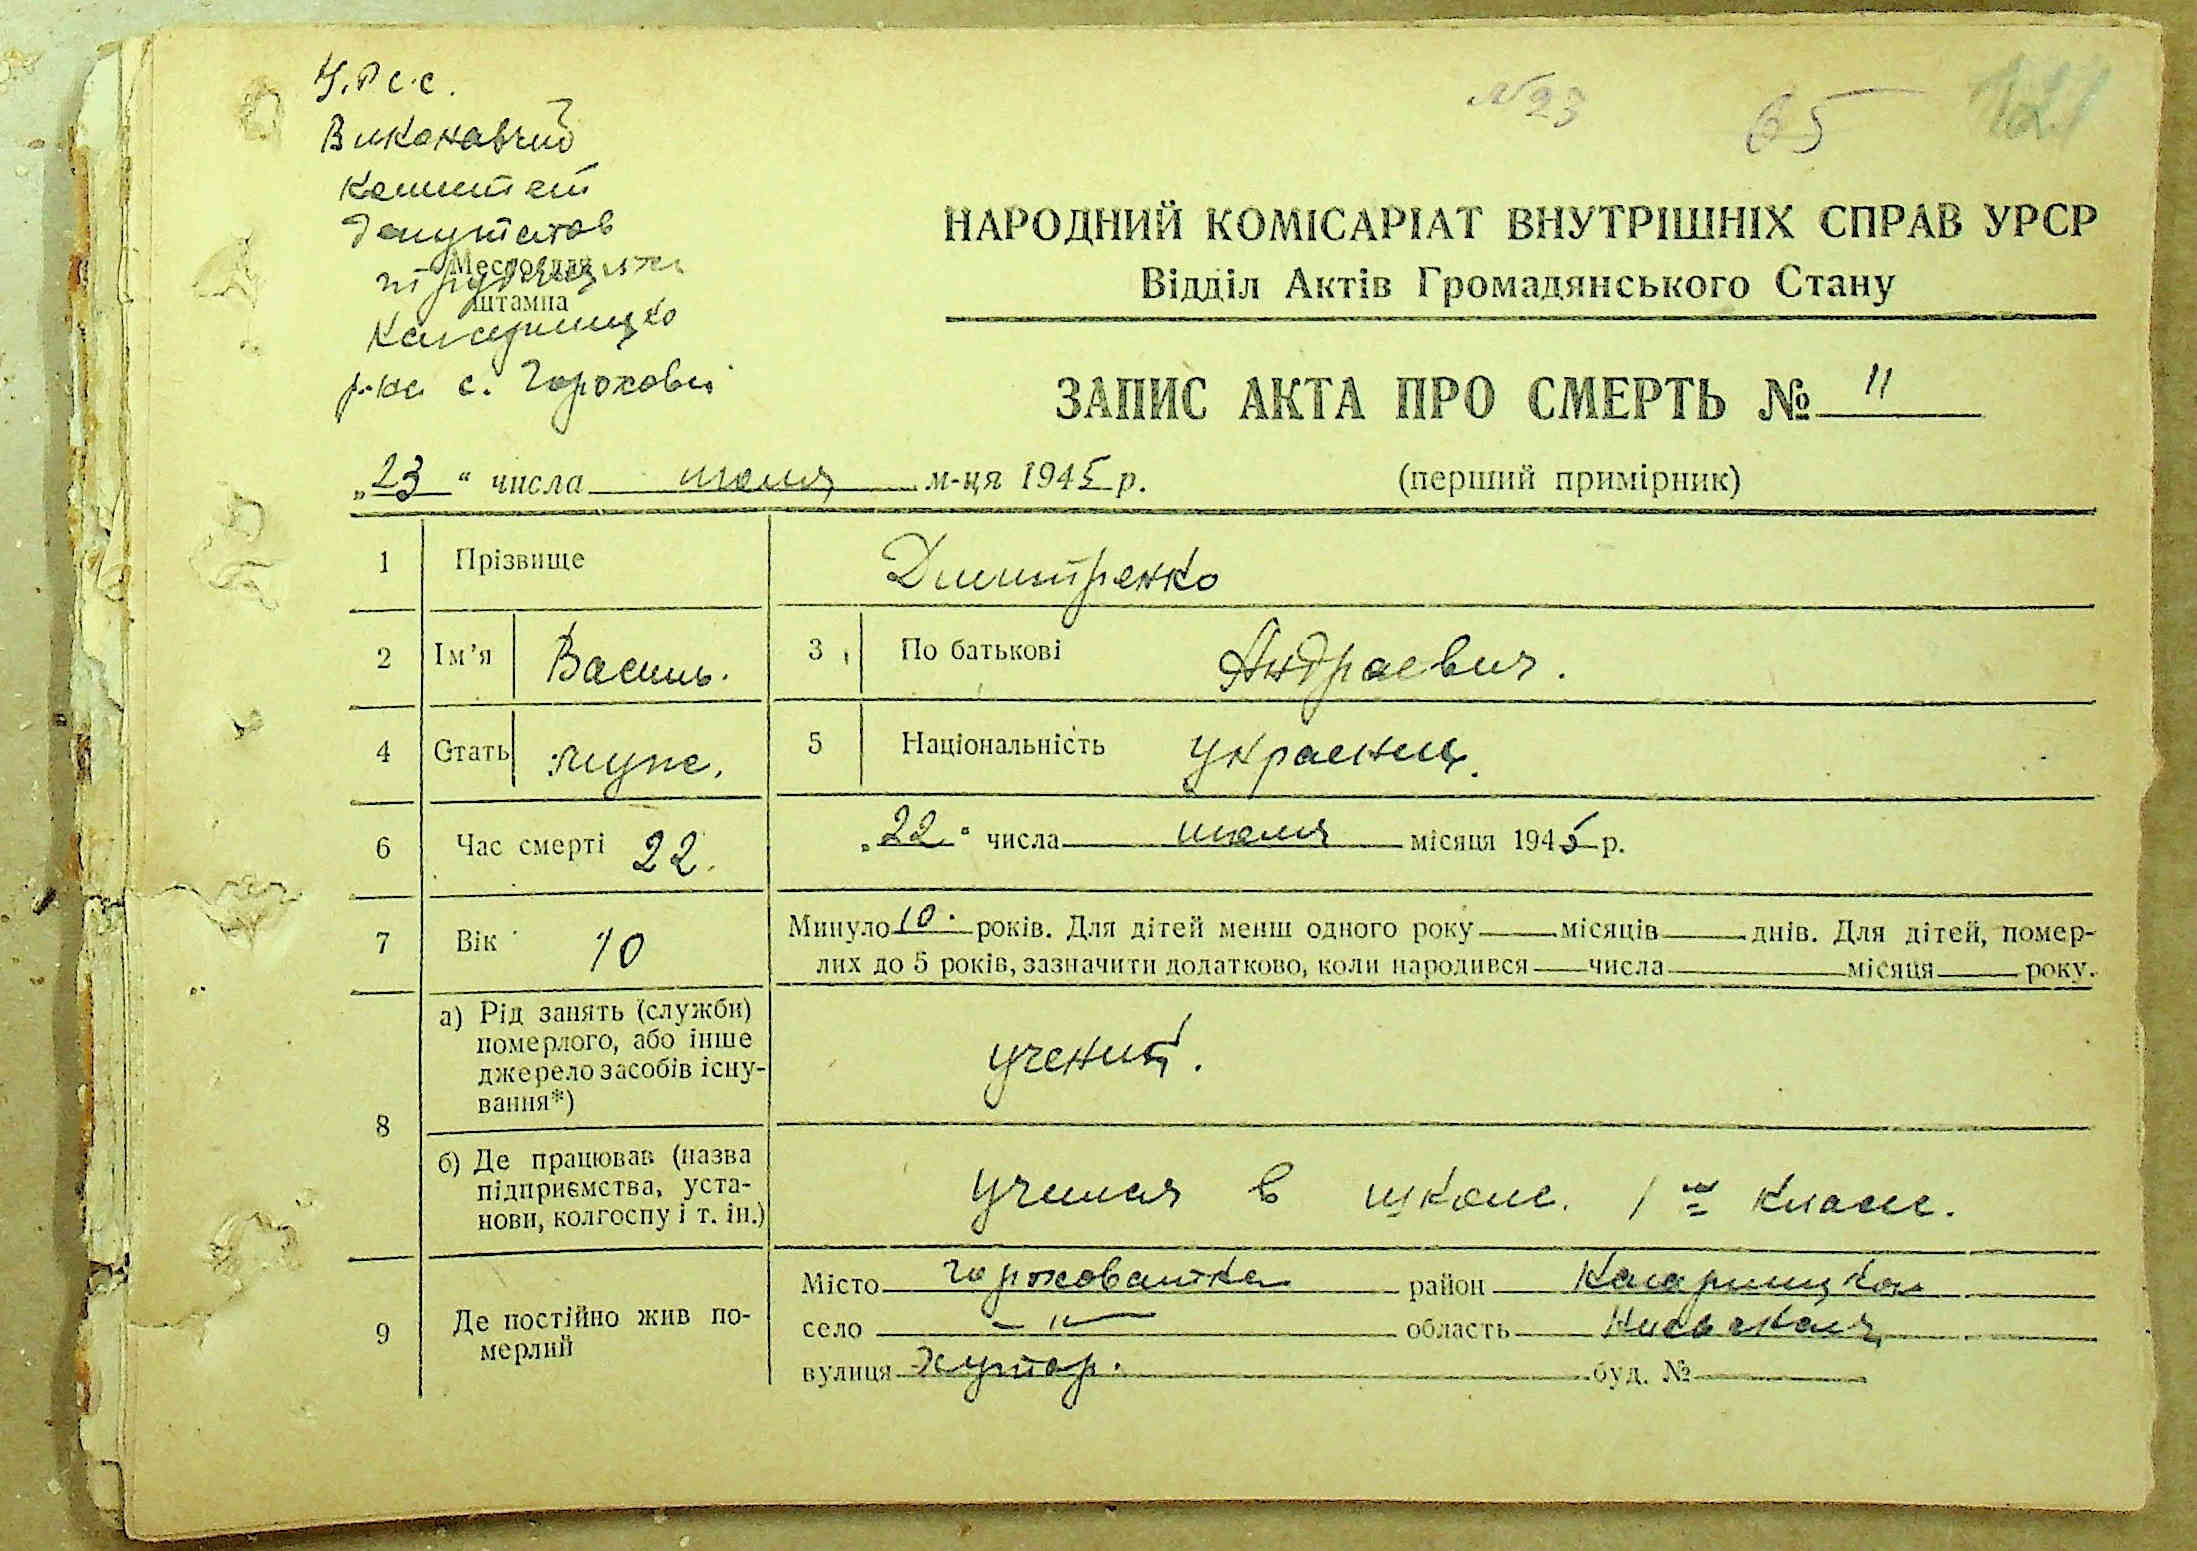 У.Р с.с.
Виконавчий
Комитет
Депутатов
Место для
трудящихся
штампа
Кагарлицко
р-на с. Горохова
№23 65 121
НАРОДНИЙ КОМІСАРІАТ ВНУТРІШНІХ СПРАВ УРСР
Відділ Актів Громадянського Стану
ЗАПИС АКТА ПРО СМЕРТЬ № 11
„23“ числа июля м-ця 1945 р. (перший примірник)
1 Прізвище Димитренко
2 Ім’я Василь. 3 По батькові Андраевич.
4 Стать муж. 5 Національність украинец.
6 Час смерті 22. „22“ числа июля місяця 1945 р.
7 Вік 10 Минуло 10 років. Для дітей менш одного року місяців днів. Для дітей, помер-
лих до 5 років, зазначити додатково, коли народився числа місяця року.
8 а) Рід занять (служби)
померлого, або інше
джерело засобів існу-
вання*) ученик.
б) Де працював (назва
підприємства, уста-
нови, колгоспу і т. ін.) учился в школе. 1 м класе.
9 Де постійно жив по-
мерлий
Місто Гороховатка район Кагарлицкого
село — " — область Киевская
вулиця Хутор. буд. №